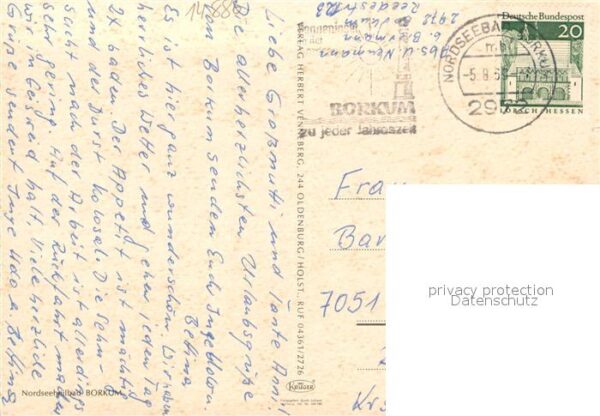 14888
Abs. U. Neumann
2972 Borkum
Reedestr.
BORKUM
zu jeder Jahreszeit
NORDSEEBAD BORKUM
-5.8.6
2972
Deutsche Bundespost
20
LORSCH/HESSEN
Liebe Großmutti und Tante Anni.
Die allerherzlichsten Urlaubsgrüße
von Borkum senden Euch
Bettina
Es ist hier ganz wunderschön. Wir haben
herrliches Wetter und gehen jeden Tag
2x baden. Der Appetit ist mächtig
und der Durst kolosal. Die Sehn-
sucht nach der Arbeit ist allerdings
sehr gering. Auf der Rückfahrt machen
wir in halt. Viele herzliche
Grüße sendet Inge Udo u. Bettina
VERLAG HERBERT VENNEBERG, 244 OLDENBURG/HOLST. RUF 04361/2726
Frau
Bar
7051
Kr
Nordseeheilbad BORKUM
Krüger
privacy protection
Datenschutz